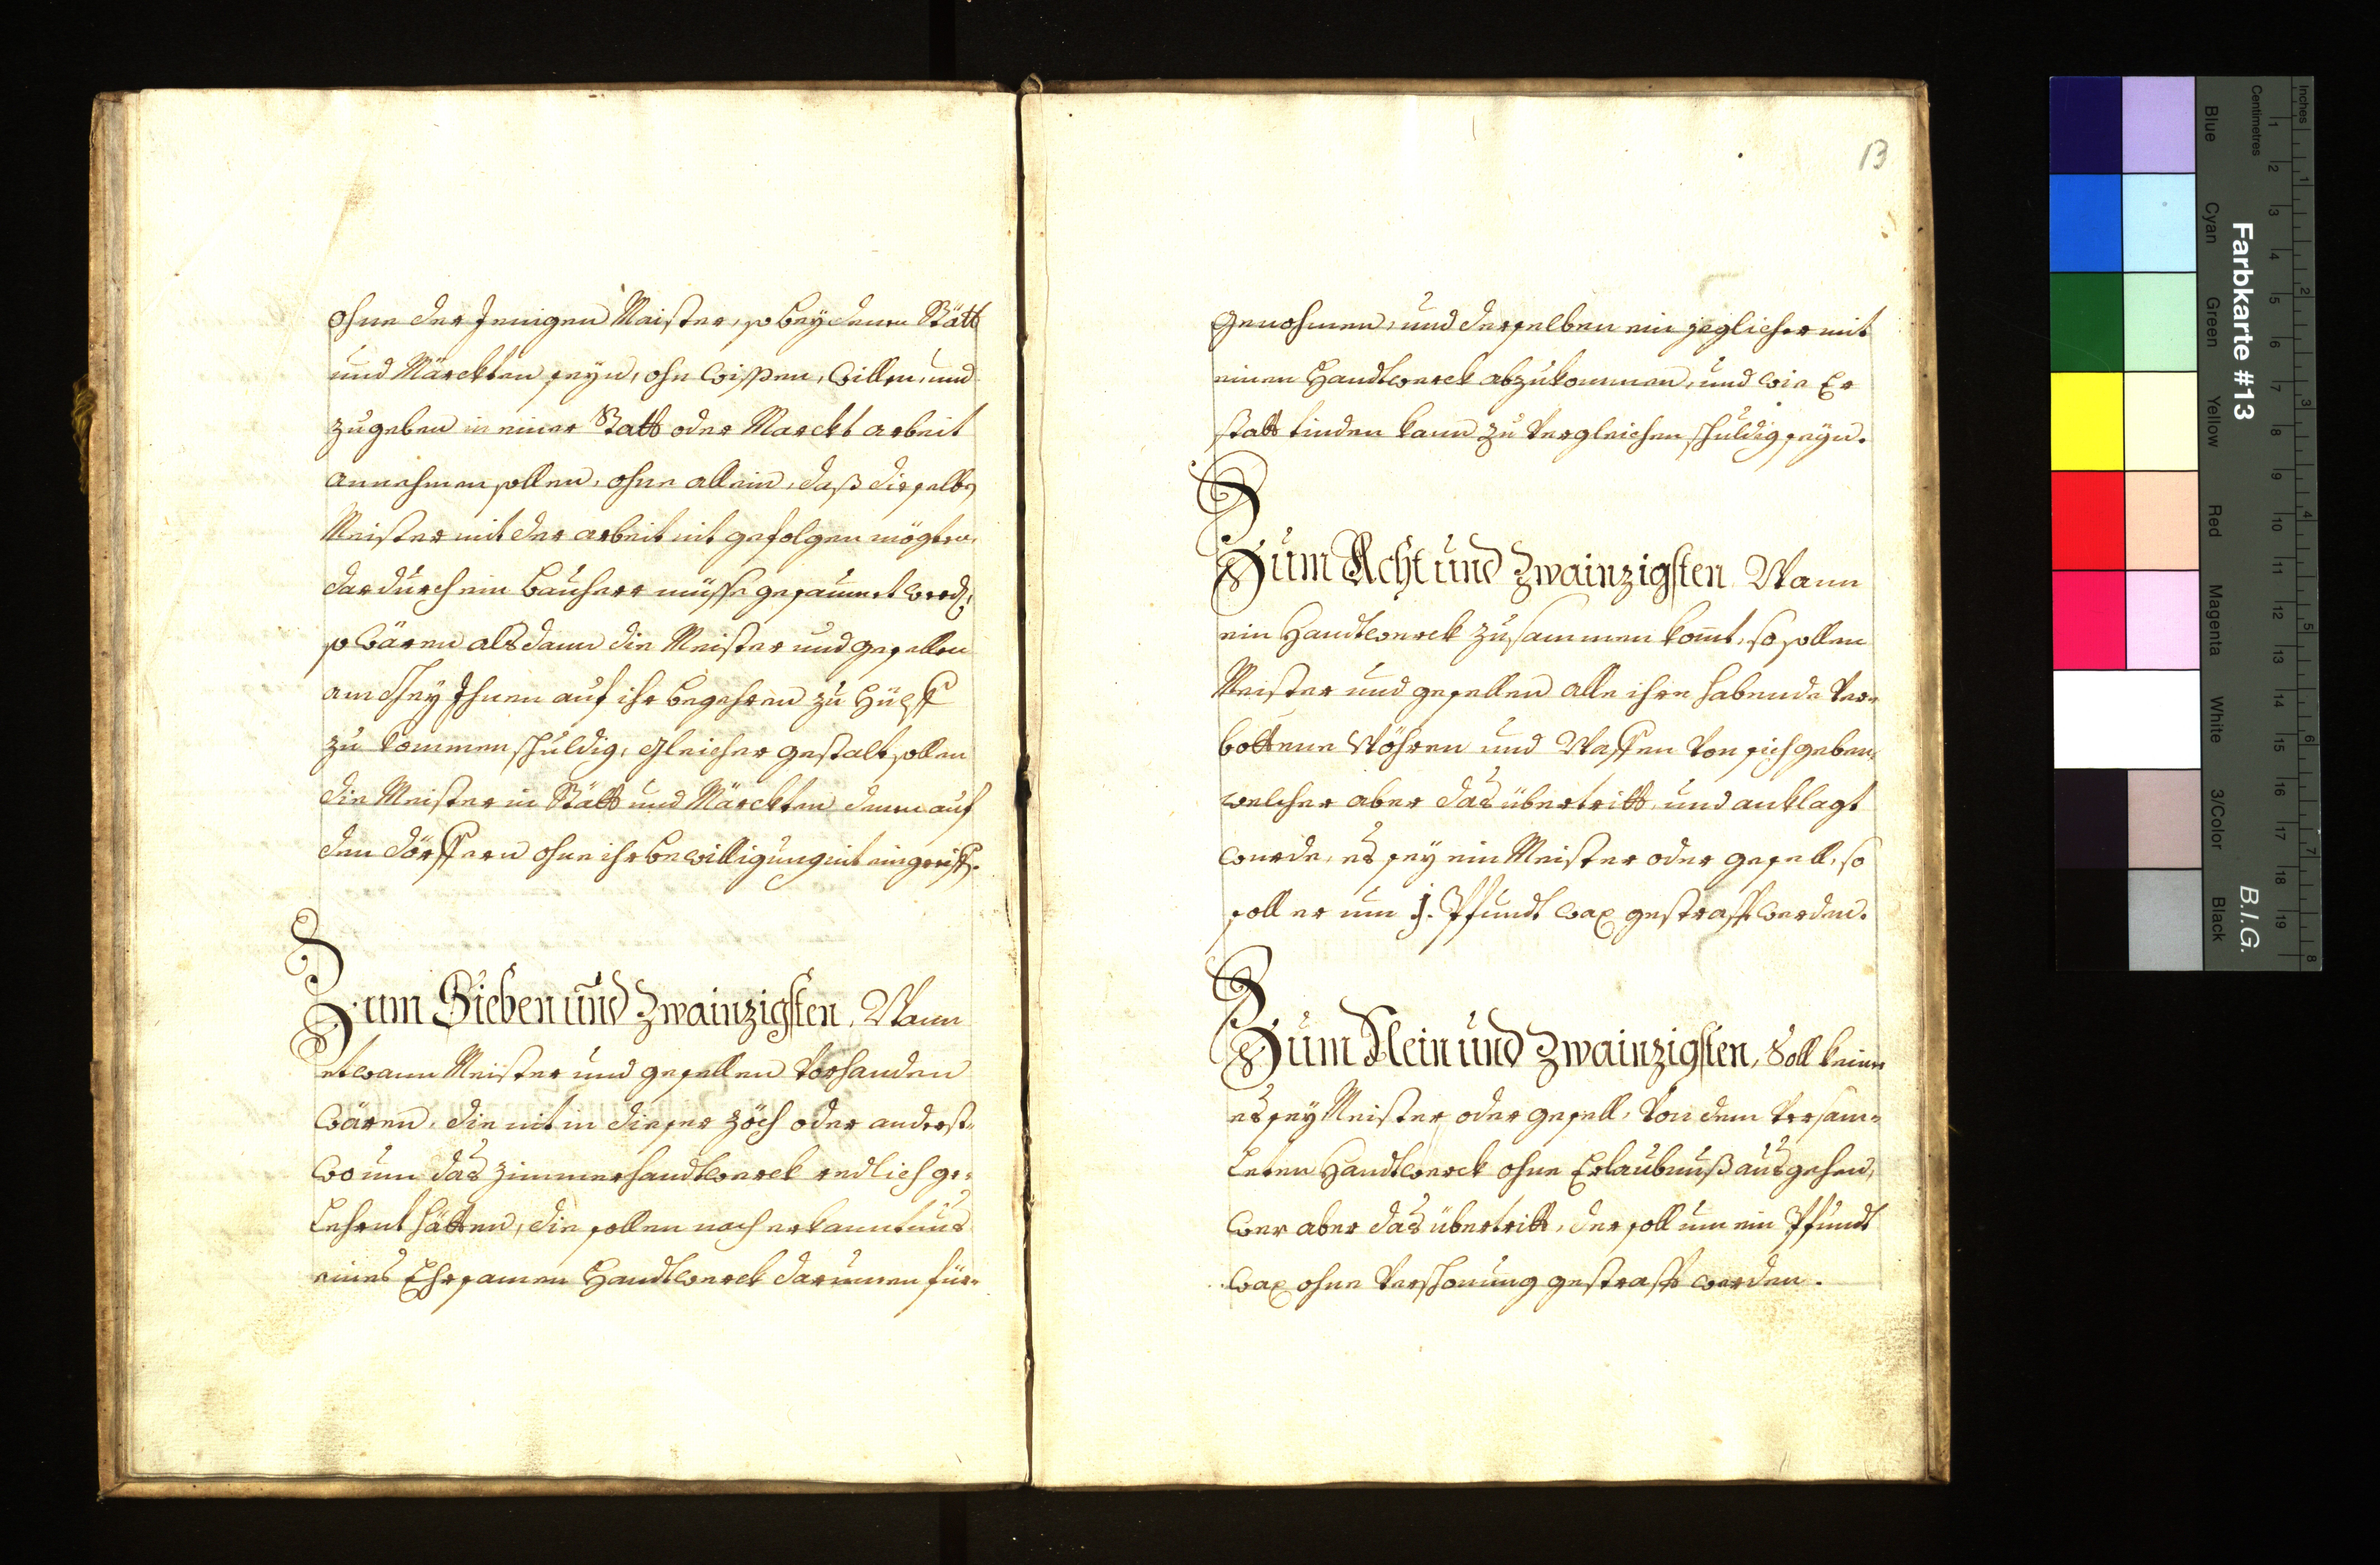 ohne der Jenigen Maister, so bey denen Stätt
und Märckten seyn, ohn wißen, willen, und
zugeben in einer Statt oder Marckt arbeit
annehmen sollen, ohne allein, daß dieselbe
Meister mit der arbeit nit gefolgen mögten,
dardurch ein Bauherr müsse gesaumet werd,
so wären alsdann die Meister und gesellen
am Ihnen auf ihr begehren zu Hülff
zu kommen schuldig, gleicher gestalt sollen
die Meister in Stätt und Märckten denen auf
den dörffern ohne ihr bewilligung nit eingreiff.
Zum Sieben und Zwainzigsten, Wann
etwann Meister und gesellen vorhanden
wären, die nit in dieser zöch oder anderst-
wo um das zimmerhandtwerck redlich ge-
lehrnt hätten, die sollen nach erkanntnus
eines Ehrsamen Handtwerck darumen für-
13
genohmen, und derselben ein jeglicher mit
einen Handtwerck abzukommen, und wie Er
statt finden kann zu vergleichen schuldig seyn.
Zum Acht und Zwainzigsten Wann
ein Handtwerck zusammen komt, so sollen
Meister und gesellen alle ihre habende ver-
bottene Wöhren und Waffen von sich geben,
welcher aber das übertritt, und anklagt
wurde, es sey ein Meister oder gesell, so
soll er um j. Pfundt wax gestrafft werden.
Zum Nein und Zwainzigsten, Soll keiner
es sey Meister oder gesell, von dem versam-
leten Handtwerck ohne Erlaubnuß ausgehen,
wer aber das übertritt, der soll um ein Pfundt
wax ohne verschonung gestrafft werden.
Farbkarte #13
B.I.G.
Inches
1
2
3
4
5
6
7
8
Centimetres
1
2
3
4
5
6
7
8
9
10
11
12
13
14
15
16
17
18
19
Blue
Cyan
Green
Yellow
Red
Magenta
White
3/Color
Black